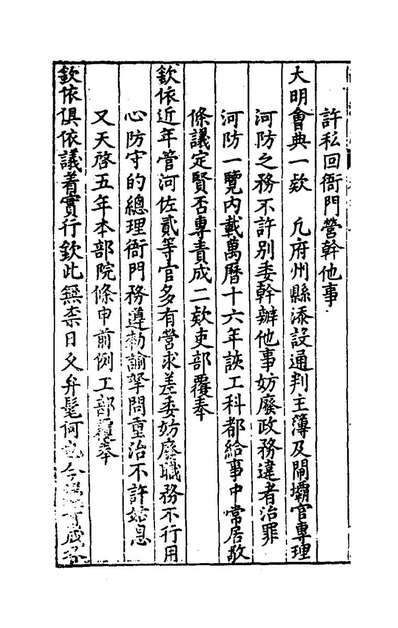 許私回衙門營幹他事
大明會典一款 凡府州縣添設通判主簿及閘壩官專理
河防之務不許別委幹辦他事妨廢政務違者治罪
河防一覽內載萬曆十六年該工科都給事中常居敬
條議定賢否專責成二款吏部覆奉
欽依近年管河佐貳等官多有營求差委妨廢職務不行用
心防守的總理衙門務遵勅諭拏問重治不許姑息
又天啓五年本部院條申前例工部覆奉
欽依俱依議着實行欽此無柰日久弁髦何也今